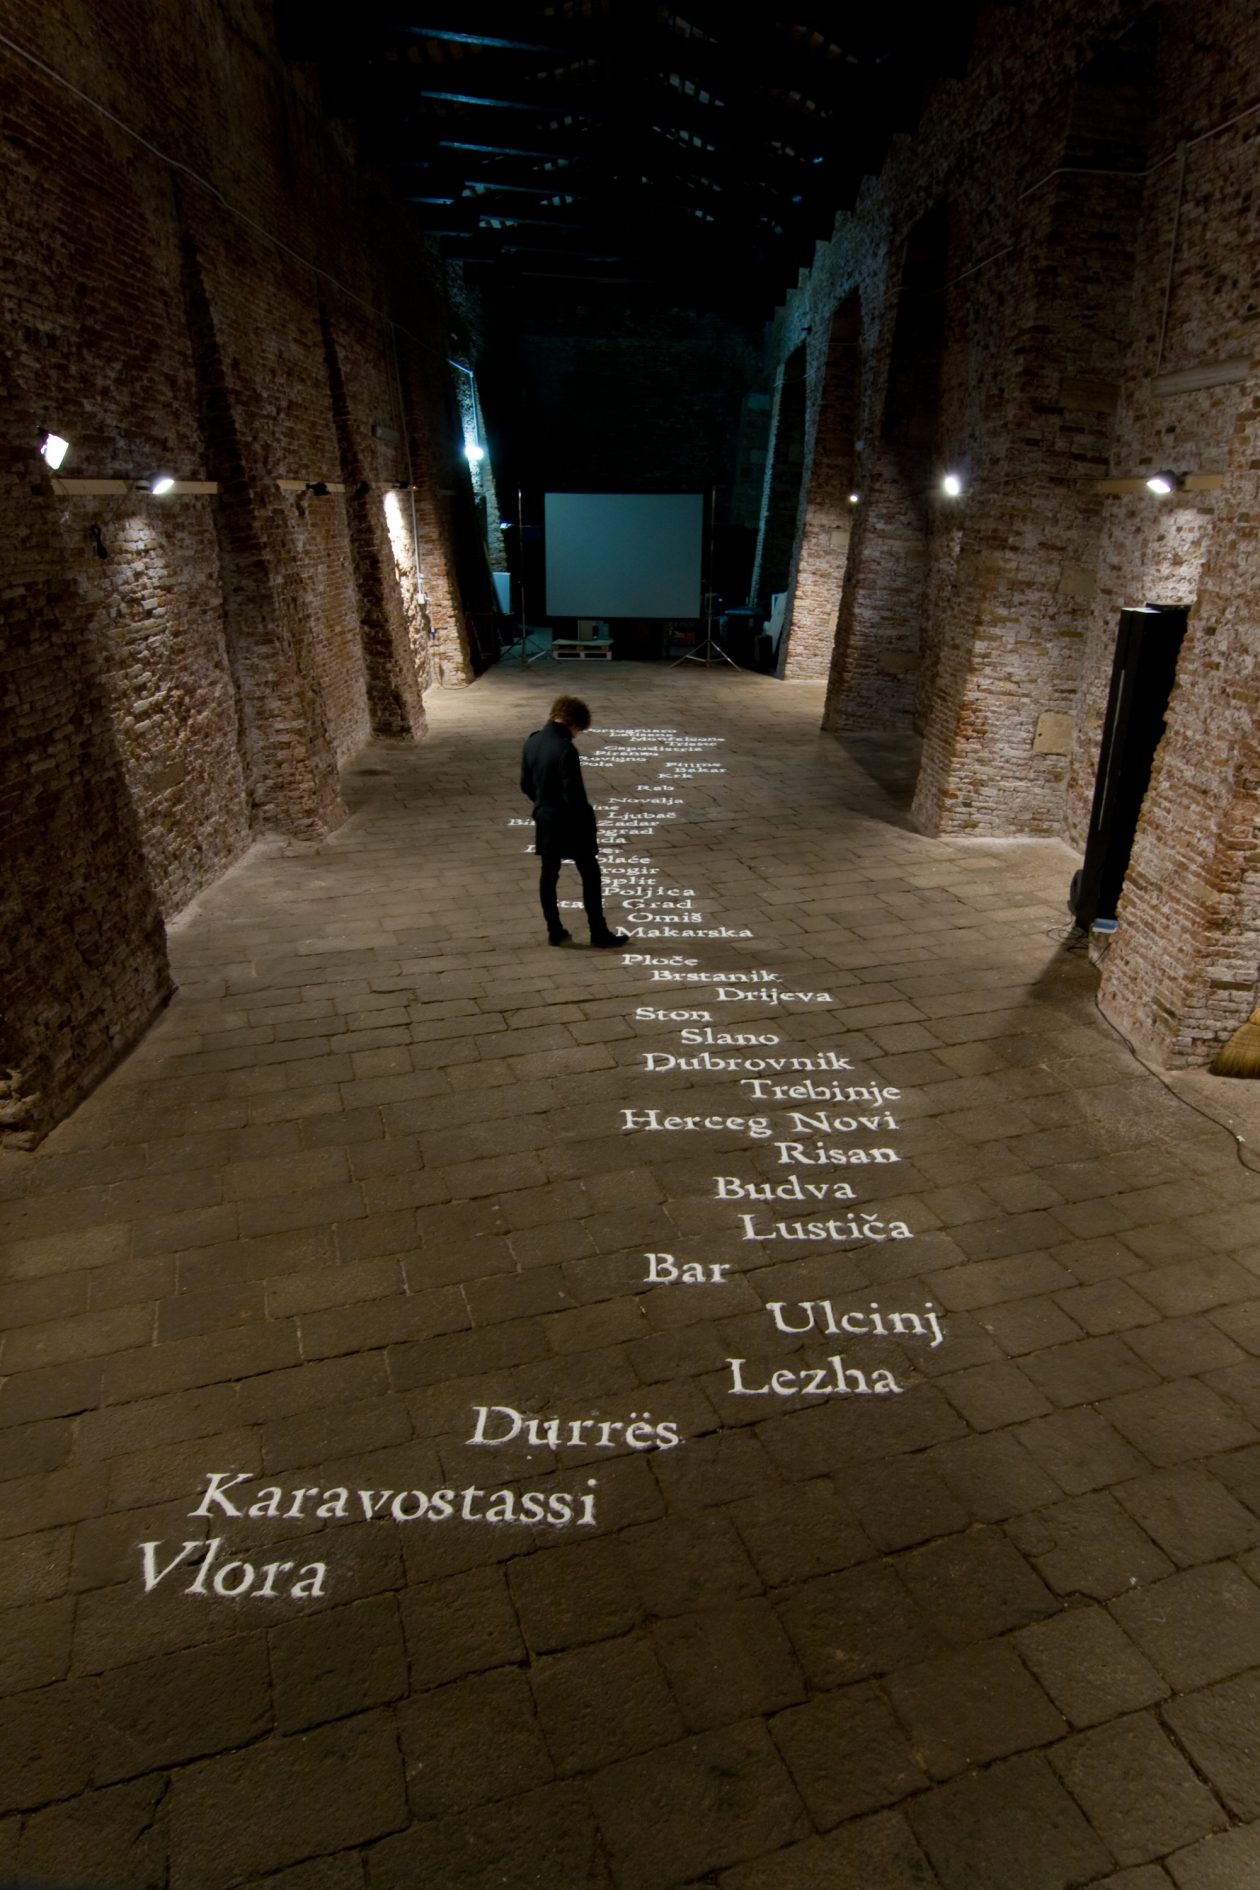 Latisana
Monfalcone
Trieste
Capodistria
Piranzo
Rovigno
Pola
Fiume
Bakar
Krk
Rab
Novalja
Ljubač
Zadar
Trogir
Split
Poljica
Grad
Omiš
Makarska
Ploče
Brstanik
Drijeva
Ston
Slano
Dubrovnik
Trebinje
Herceg Novi
Risan
Budva
Lustiča
Bar
Ulcinj
Lezha
Durrës
Karavostassi
Vlora